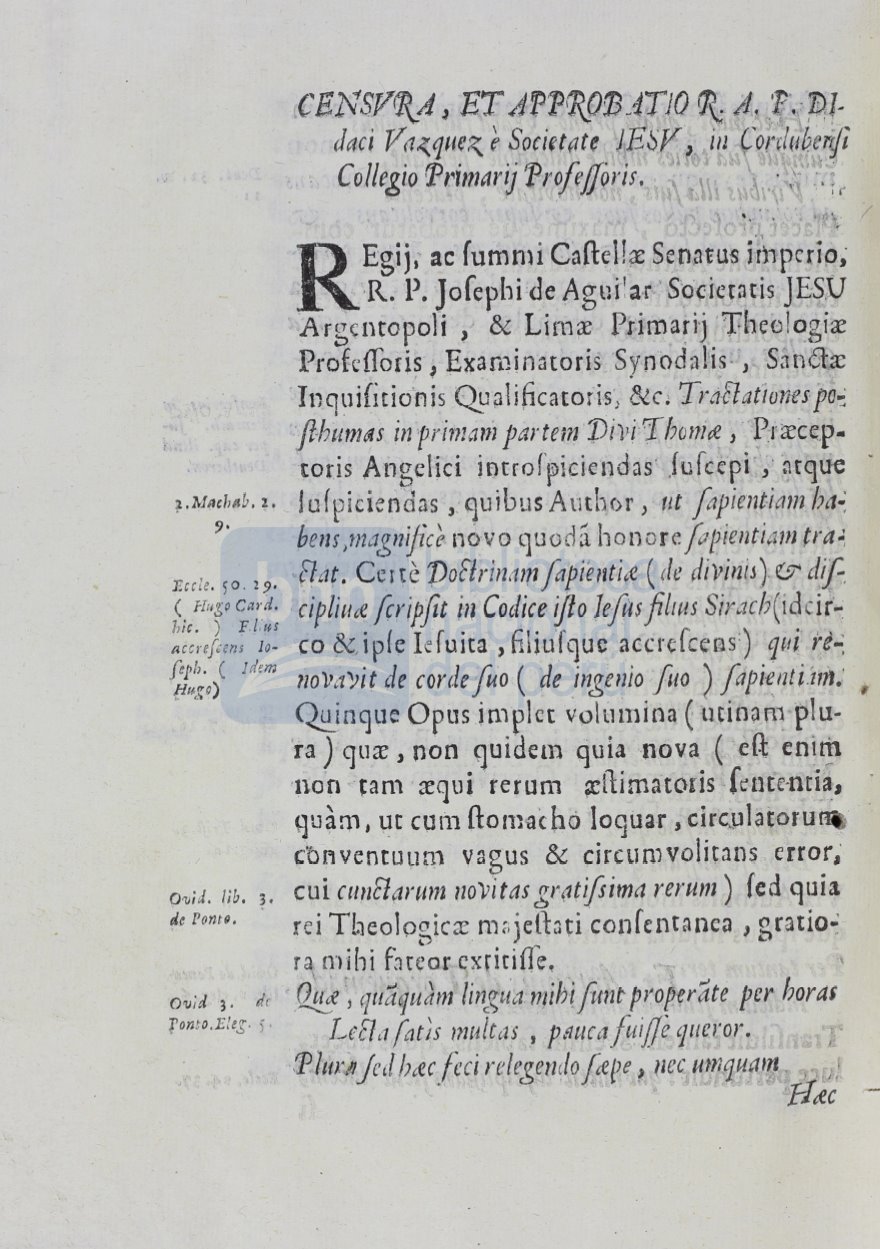 CENSVRA, ET APPROBATIO R. A. P. DI-
daci Vazquez è Societate IESV, in Cordubensi
Collegio Primarij Professoris.
REgij, ac summi Castellæ Senatus imperio,
R. P. Josephi de Aguilar Societatis JESU
Argentopoli, & Limæ Primarij Theologiæ
Professoris, Examinatoris Synodalis, Sanctæ
Inquisitionis Qualificatoris, &c. Tractationes po-
sthumas in primam partem Divi Thomæ, Præcep-
toris Angelici introspiciendas suscepi, atque
suspiciendas, quibus Author, ut sapientiam ha-
bens, magnificè novo quodã honore sapientiam tra-
ctat. Certè Doctrinam sapientiæ (de divinis) & dis-
ciplinæ scripsit in Codice isto Iesus filius Sirach (idcir-
co & ipse Iesuita, filiusque accrescens) qui re-
novavit de corde suo (de ingenio suo) sapientiam.
Quinque Opus implet volumina (utinam plu-
ra) quæ, non quidem quia nova (est enim
non tam æqui rerum æstimatoris sententia,
quàm, ut cum stomacho loquar, circulatorum
conventuum vagus & circumvolitans error,
cui cunctarum novitas gratissima rerum) sed quia
rei Theologicæ majestati consentanea, gratio-
ra mihi fateor extitisse.
Quæ, quãquàm lingua mihi sunt properãte per horas
Lecta satìs multas, pauca fuisse queror.
Plura sed hæc feci relegendo sæpe, nec umquam
Hæc
2. Machab. 2.
9.
Eccle. 50. 29.
(Hugo Card.
hic.) Filius
accrescens Io-
seph. (Idem
Hugo)
Ovid. lib. 3.
de Ponto.
Ovid 3. de
Ponto. Eleg. 5.